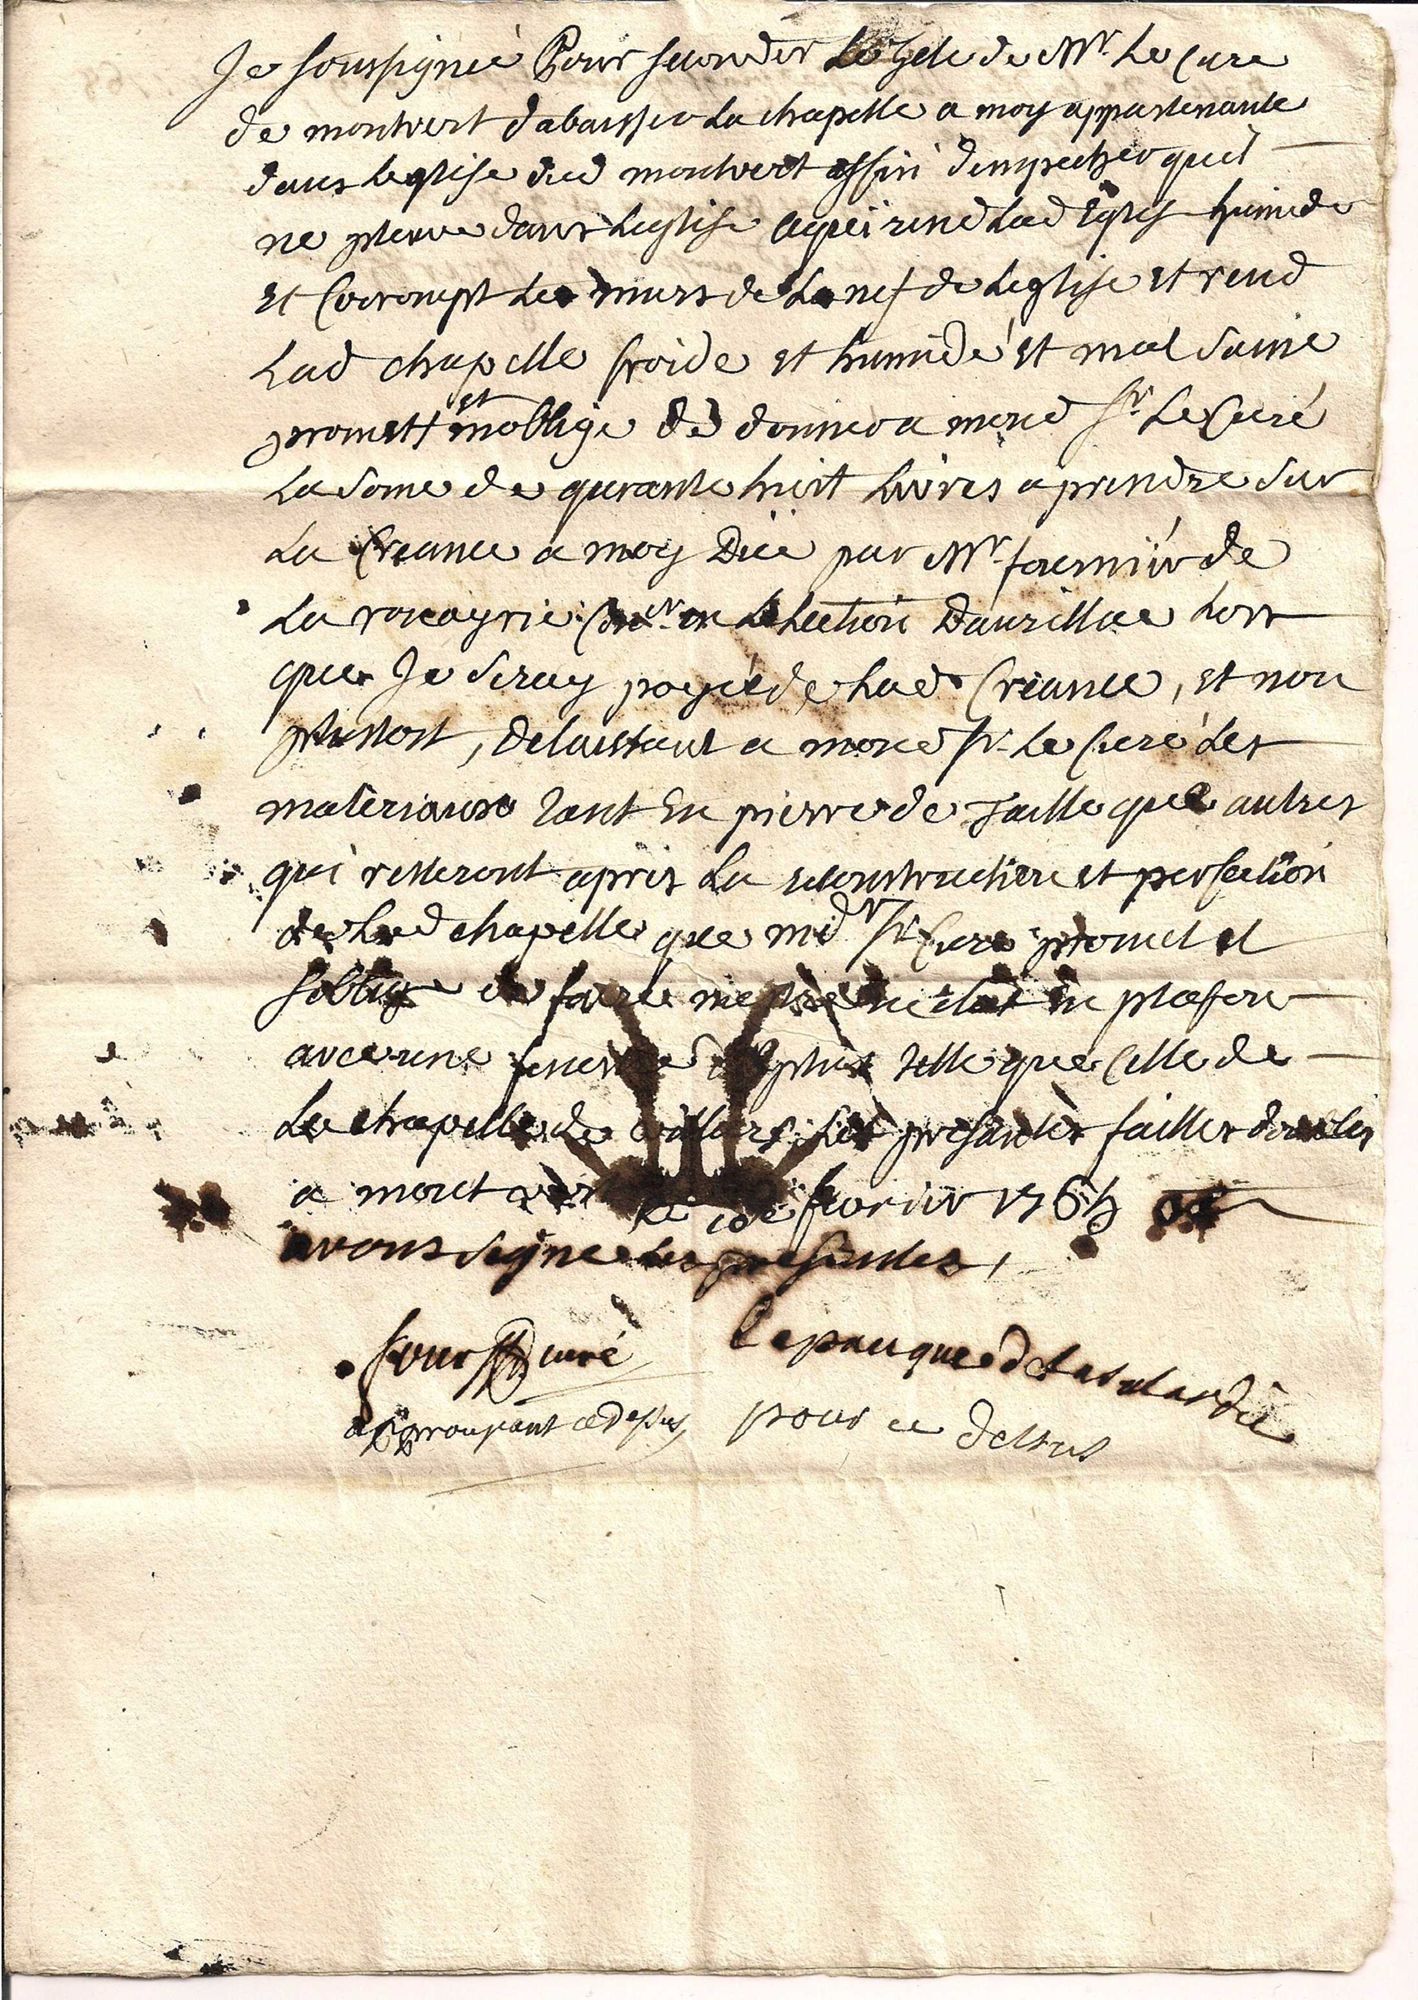 Je soussignée Pour seconder Le Zele de Mr. Le Cure
de montvert dabaisser La chapelle a moy appartenante
dans Leglise dud montvert affin dempecher quil
ne pleuve dans Leglise ce qui rend Lad Eglise humide
et Corrompt Les murs de La nef de Leglise et rend
Lad chapelle froide et humide et mal saine
promett et moblige de donner a mond Sr. Le Curé
La some de quarante huit Livres a prendre sur
La Creance a moy Düe par Mr. fournier de
La rocayrie Coner. en Lelection Daurillac Lors
que Je seray payée de Lad Creance, et non
plustost, delaissant a mond Sr. Le Curé Les
materiaux tant En pierre de Taille que autres
qui resteront apres La reconstruction et perfection
de Lad chapelle que md Sr Cure promet et
soblige de faire mettre en etat en plafon
avec une fenestre de plus telle que Celle de
La chapelle de Les presantes failles doubles
a montvert Le 10e fevrier 1765
avons signe Les presentes,
curé Lapauque d Lasalardie
approuvant ce Desus pour ce dessus